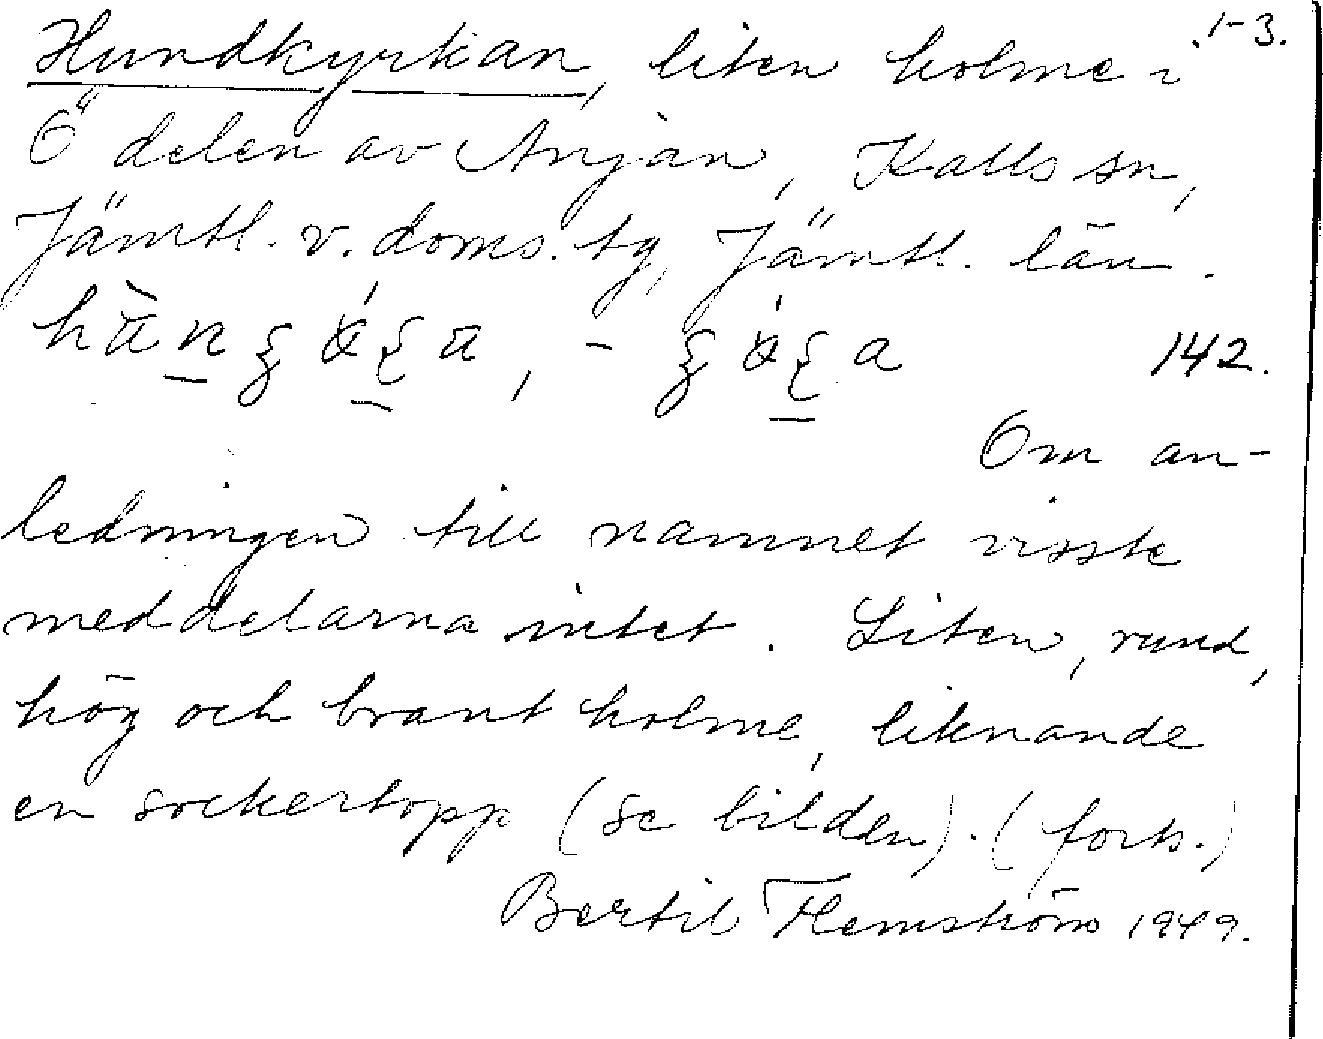 1-3.
Hundkyrkan, liten holme i
Ö delen av Anjan, Kalls sn,
Jämtl. v. doms. tg, Jämtl. län.
142.
Om an-
ledningen till namnet visste
meddelarna intet. Liten, rund,
hög och brant holme, liknande
en sockertopp (se bilden). (forts.)
Bertil Flemström 1949.